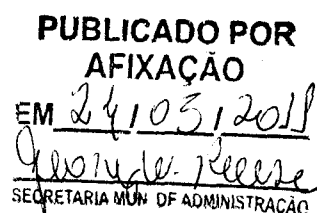 PUBLICADO POR
AFIXAÇÃO
EM 24/05/2011
SECRETARIA MUN DF ADMINISTRAÇÃO